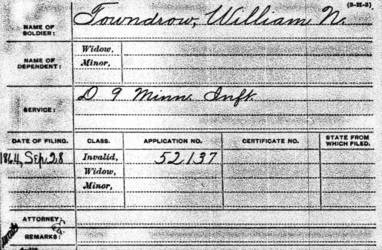 (3-III-3)
NAME OF SOLDIER: Towndrow, William N.
NAME OF DEPENDENT: Widow,
Minor,
SERVICE: D 9 Minn. Inft.
DATE OF FILING. CLASS. APPLICATION NO. CERTIFICATE NO. STATE FROM WHICH FILED.
1864, Sep. 28 Invalid, 52,137
Widow,
Minor,
ATTORNEY:
REMARKS: